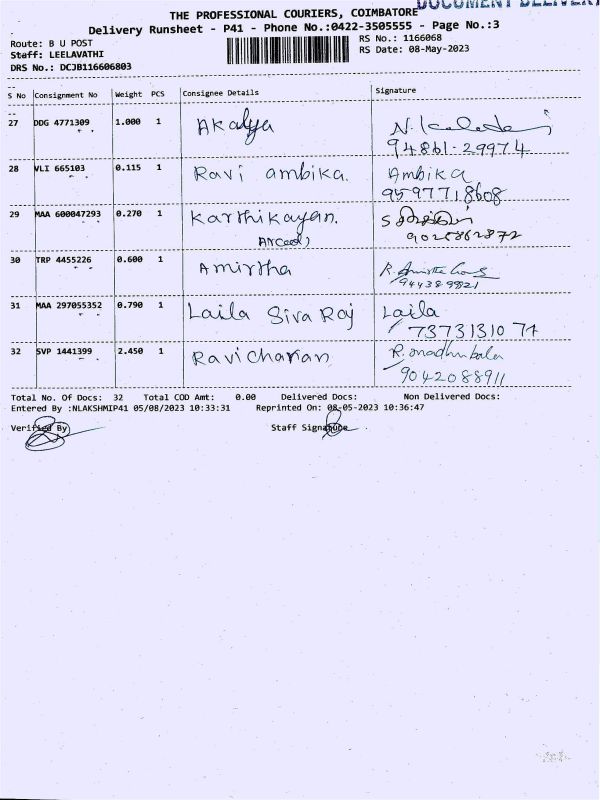 DOCUMENT DELIVERY
THE PROFESSIONAL COURIERS, COIMBATORE
Delivery Runsheet - P41 - Phone No.:0422-3505555 - Page No.:3
Route: B U POST
RS No.: 1166068
Staff: LEELAVATHI
RS Date: 08-May-2023
DRS No.: DCJB116606803
S No Consignment No Weight PCS Consignee Details Signature
27 DDG 4771309 1.000 1 Akalya
94861-29974
28 VLI 665103 0.115 1 Ravi ambika. Ambika
9597718608
29 MAA 600047293 0.270 1 Karthikayan.
9025862872
30 TRP 4455226 0.600 1 Amirtha
94438-99821
31 MAA 297055352 0.790 1 Laila Siva Raj Laila
7373131074
32 SVP 1441399 2.450 1 Ravicharan R. madhubala
9042088911
Total No. Of Docs: 32 Total COD Amt: 0.00 Delivered Docs: Non Delivered Docs:
Entered By :NLAKSHMIP41 05/08/2023 10:33:31 Reprinted On: 08-05-2023 10:36:47
Verified By Staff Signature